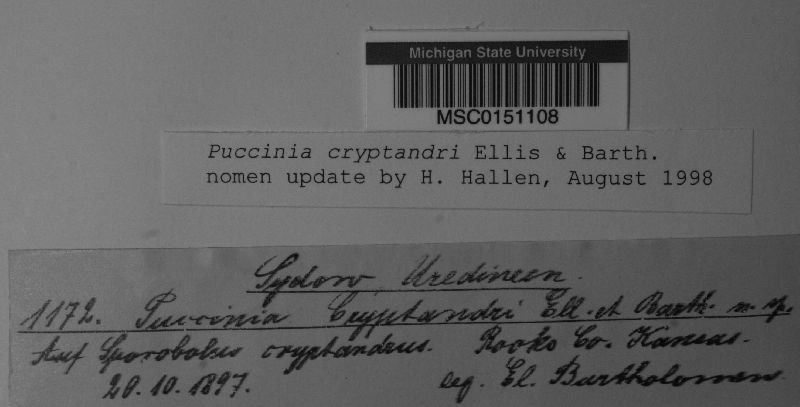 Michigan State University
MSC0151108
Puccinia cryptandri Ellis & Barth.
nomen update by H. Hallen, August 1998
Sydow Uredineen.
1172. Puccinia Cryptandri Ell. et Barth. n. sp.
Auf Sporobolus cryptandrus. Rooks Co. Kansas.
20.10.1897. leg. El. Bartholomew